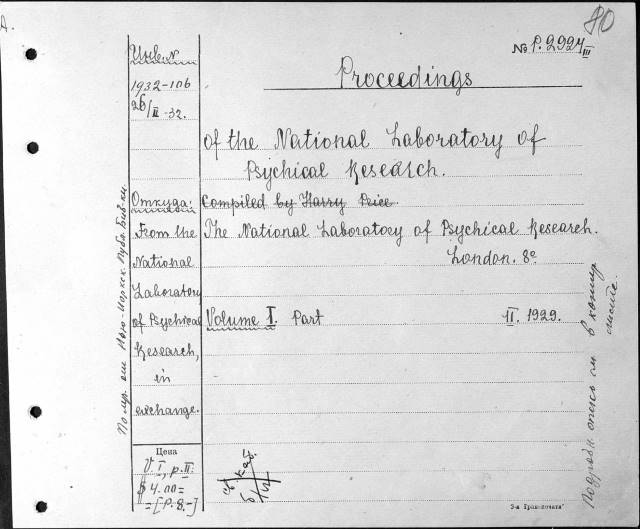 80
№ P.2924/III
Инв. №
1932-106
26/II-32.
Proceedings
of the National Laboratory of
Psychical Research.
Откуда:
From the
National
Laboratory
of Psychical
Research,
in
exchange.
Compiled by Harry Price.
The National Laboratory of Psychical Research.
London. 8º
Volume I. Part II. 1929.
Цена
V. I, p. II.
$ 4.00=
=[р. 8.-]
Подробн. опись см. в конце